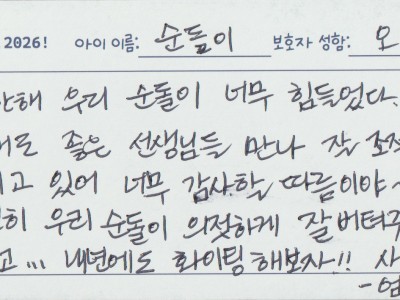 2026! 아이 이름: 순돌이 보호자 성함: 오
한해 우리 순돌이 너무 힘들었다.
좋은 선생님들 만나 잘
있어 너무 감사할 따름이야~
우리 순돌이 의젓하게 잘 버텨주
고... 내년에도 화이팅 해보자!! 사